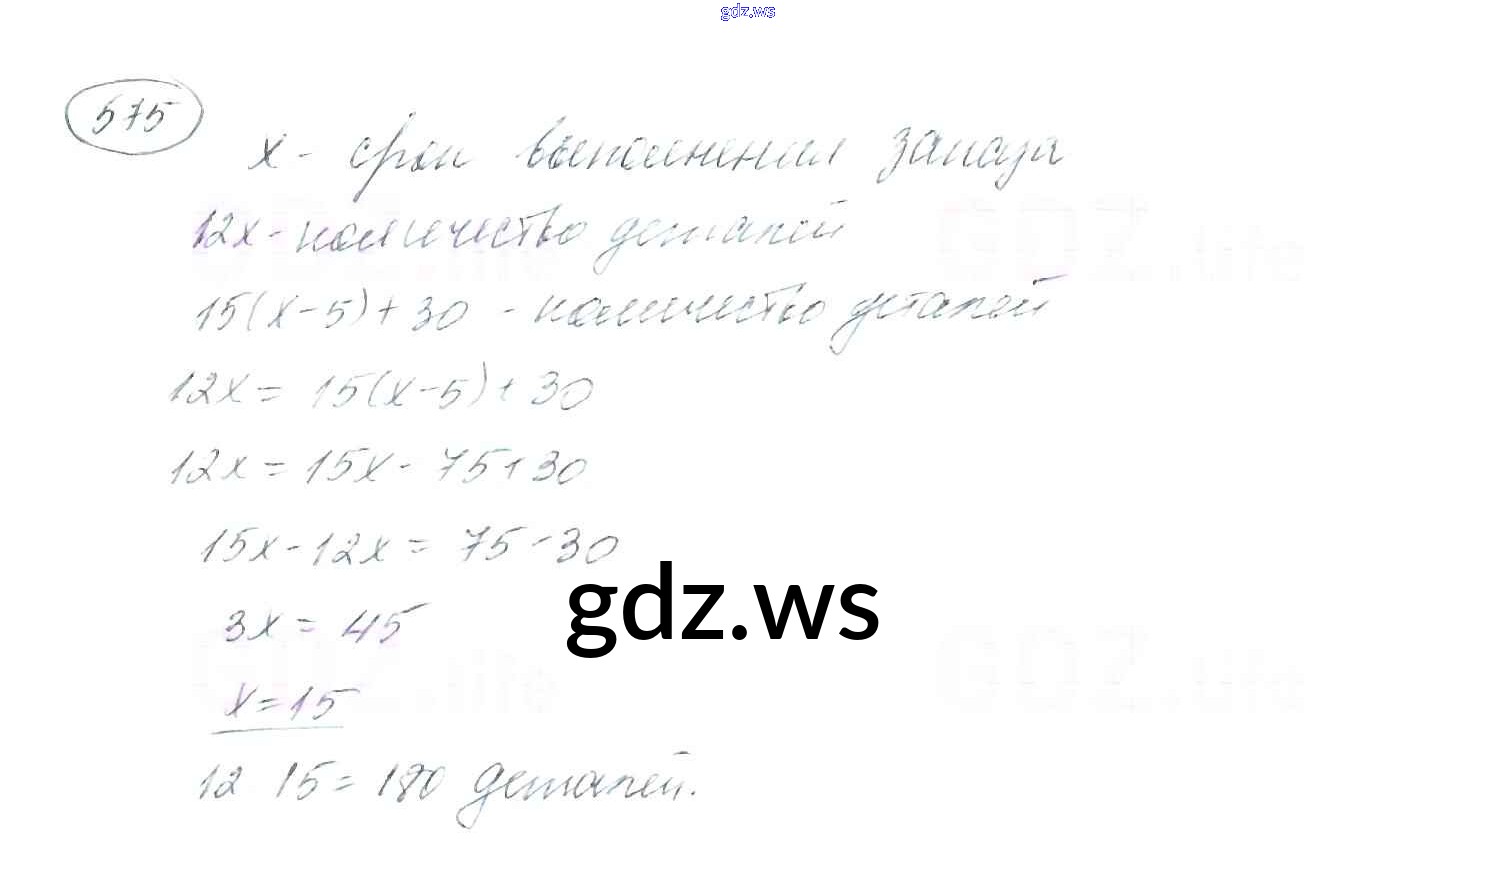 gdz.ws
575
x - срок выполнения заказа
12x - количество деталей
15(x-5)+30 - количество деталей
12x = 15(x-5)+30
12x = 15x - 75+30
15x - 12x = 75-30
gdz.ws
3x = 45
x = 15
12 15 = 180 деталей.
GDZ.life
GDZ.life
GDZ.life
GDZ.life